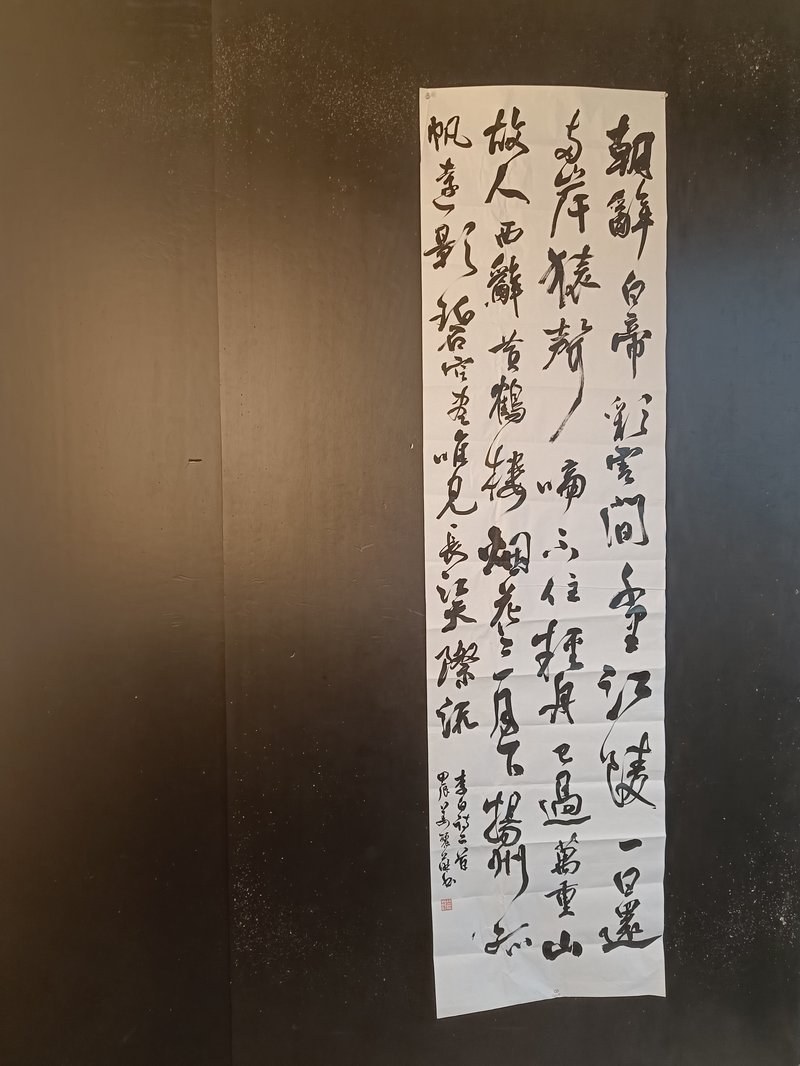 朝辭白帝彩雲間千里江陵一日還
兩岸猿聲啼不住輕舟已過萬重山
故人西辭黄鶴樓烟花三月下揚州孤
帆遠影碧空盡唯見長江天際流
李白詩二首
甲辰